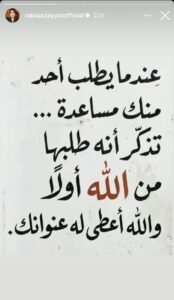 rabiazzayyatofficial 22h
عِندما يطلب أحد
منك مساعدة ...
تذكّر أنه طلبها
من الله أولًا
والله أعطى له عنوانك.